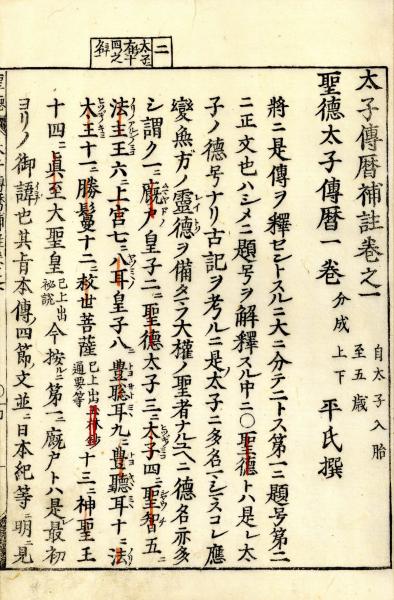 二 太子有十四之名辯
太子傳曆補註卷之一 自太子入胎至五歲
聖德太子傳曆一卷 分成上下 平氏撰
將ニ是傳ヲ釋セントスルニ大ニ分テニトス第一ニ題号第二
ニ正文也ハシメニ題号ヲ解釋スル中ニ〇聖德トハ是レ太
子ノ德号ナリ古記ヲ考ルニ是太子ニ多名マシマスコレ應
變無方ノ靈德ヲ備タマフ大權ノ聖者ナルユヘニ德名亦多
シ謂ク一ニ廐戸ノ皇子二ニ聖德太子三ニ太子四ニ聖智五ニ
法主王六ニ上宮七ニ八耳皇子八ニ豊聡耳九ニ豊聽耳十ニ法
大王十一ニ勝鬘十二ニ救世菩薩 已上出 通要等 十三ニ神聖王
十四ニ眞至大聖皇 已上出秘説 今按ルニ第一ニ廐戸トハ是レ最初
ヨリノ御諱也其旨本傳ノ四節ノ文並ニ日本紀等ニ明ニ見